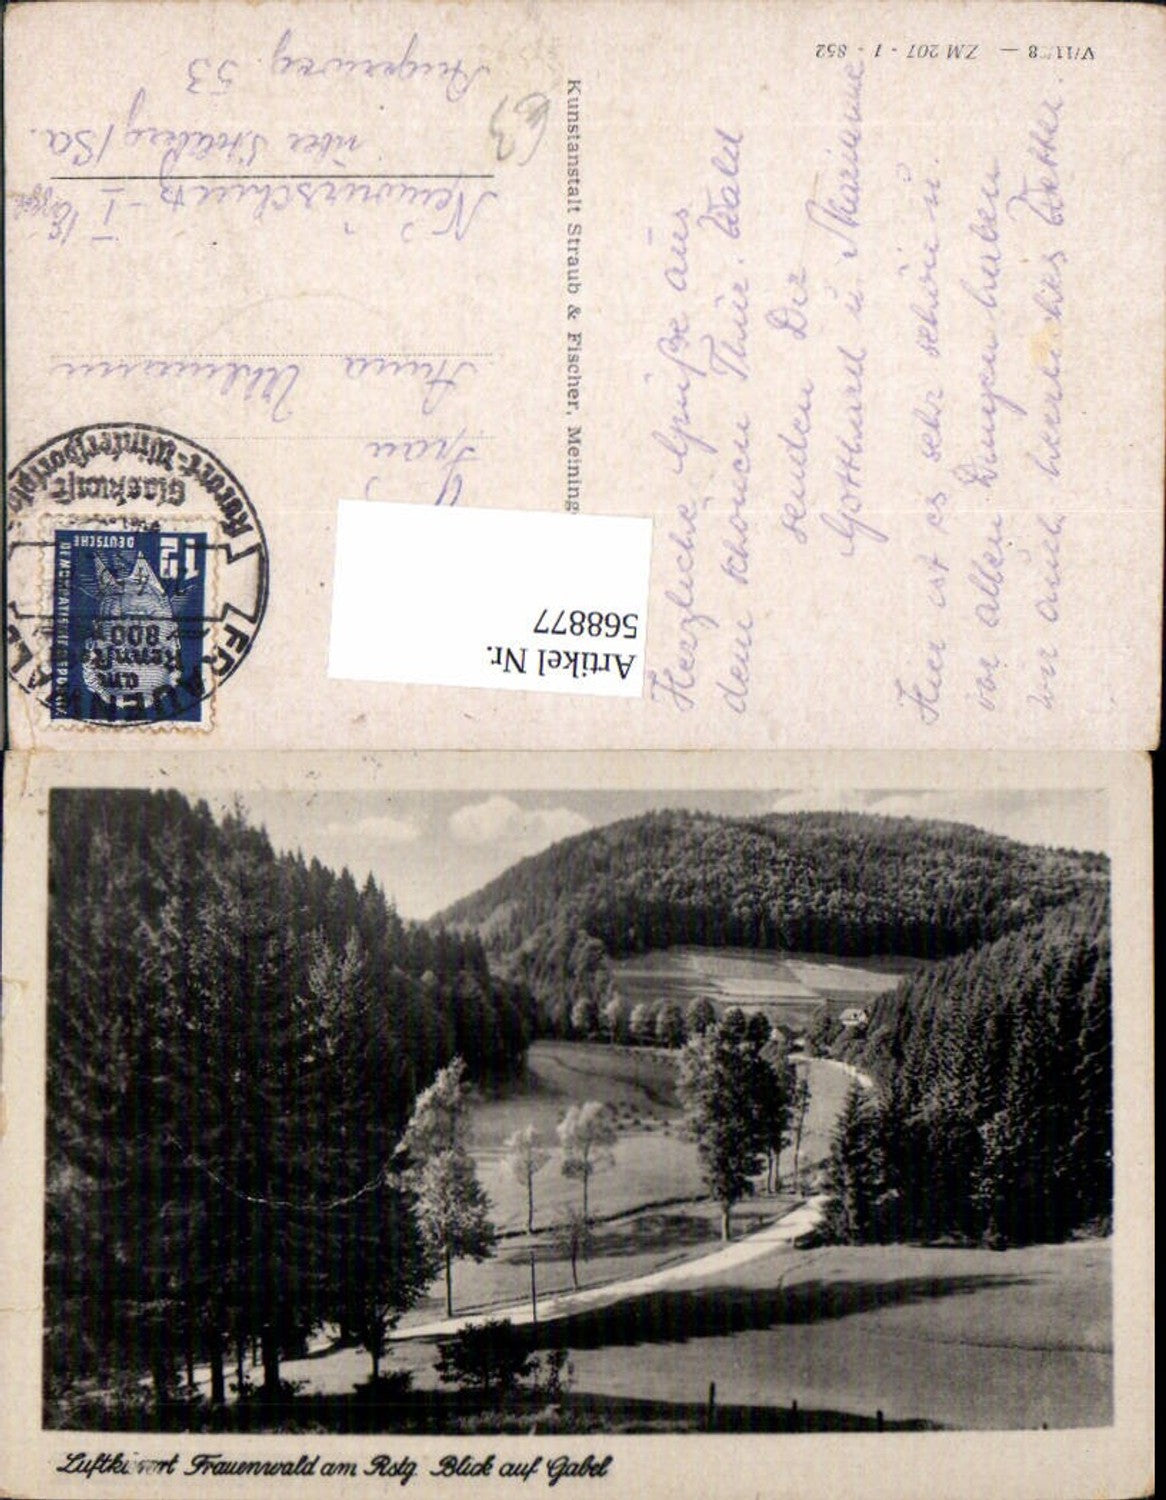 V/11/28 — ZM 207 - 1 - 852
Herzliche Grüße aus
dem schönen Thür. Wald
senden Dir
Gotthard u. Marianne
Hier ist es sehr schön u.
vor allen Dingen haben
wir auch herrliches Wetter.
Kunstanstalt Straub & Fischer, Meining
63
Frau
Anna Uhlmann
Neuoelsnitz - I
über Stollberg/Sa.
53
12
DEUTSCHE
DEMOKRATISCHE REPUBLIK
FRAUENWALD
am
Renn
800
Glaskunst
Kurort-Wintersport
Artikel Nr.
568877
Luftkurort Frauenwald am Rstg. Blick auf Gabel